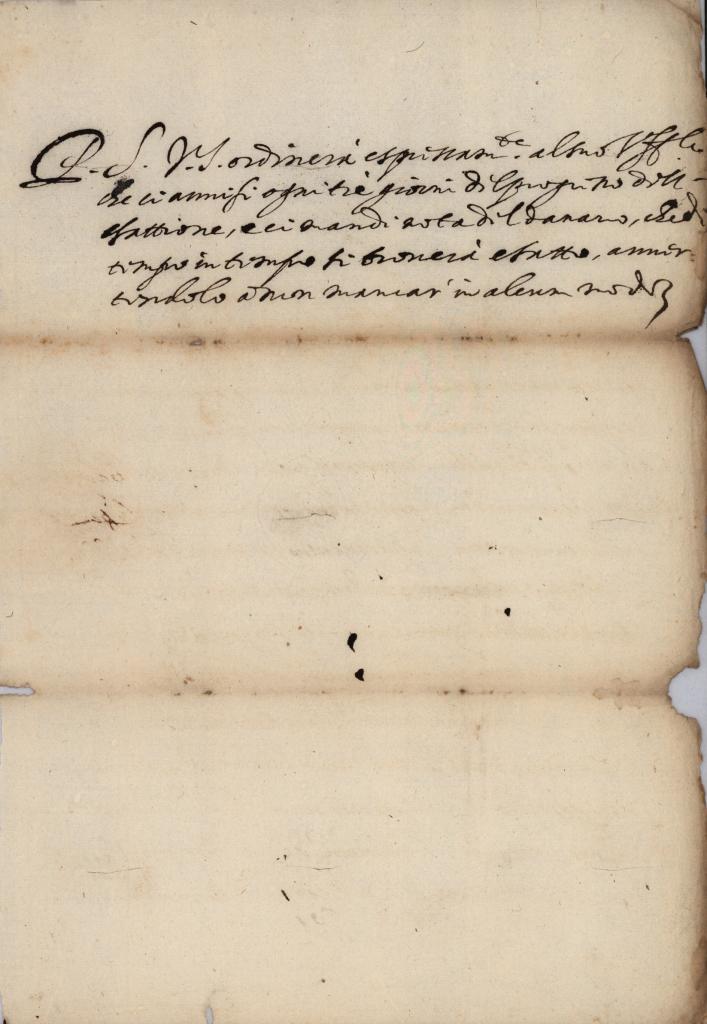 P. S. V. S. ordinerà espressam.te al suo Uff.le
che ci avvisi ogni trè giorni del progresso dell'-
esattione, e ci mandi nota del danaro, che di
tempo in tempo si troverà esatto, avver-
tendolo à non mancar' in alcun modo